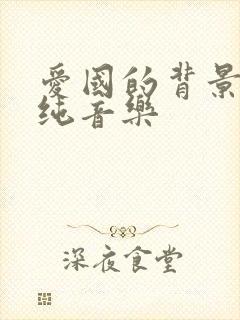 愛國的背景
纯音樂
深夜食堂